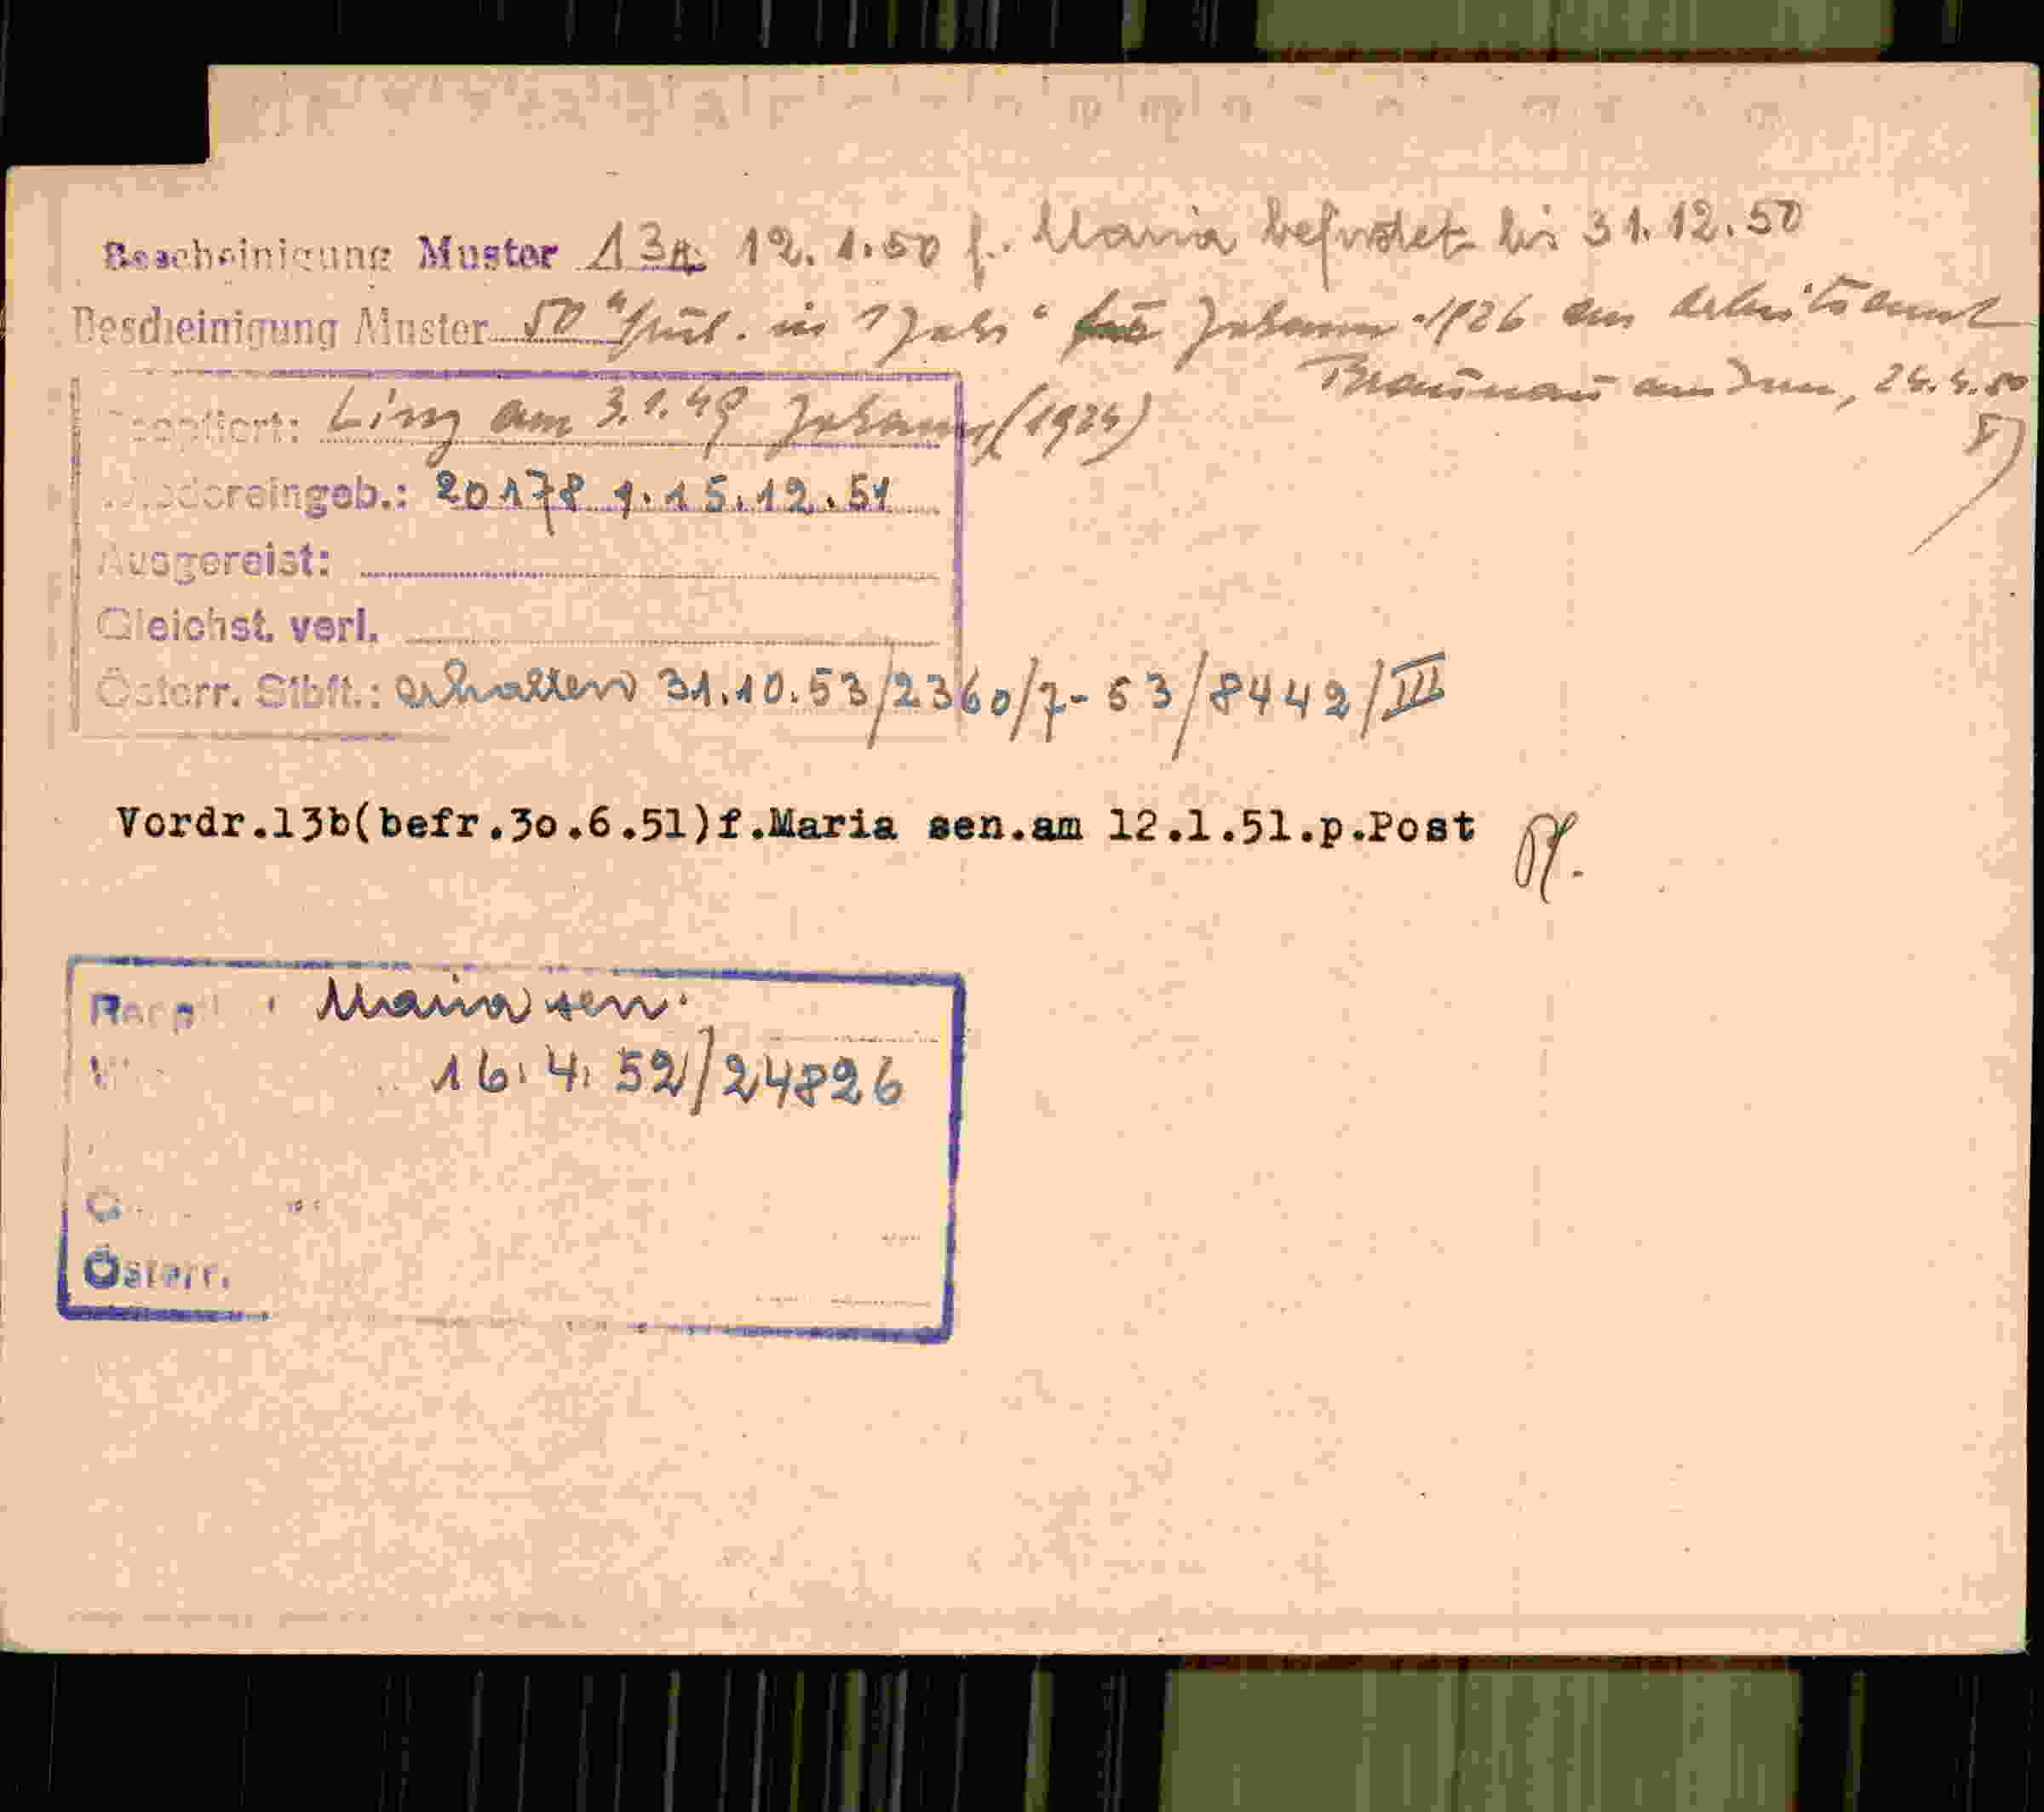 Bescheinigung Muster 13a. 12.1.50 f. Maria befristet bis 31.12.50
Bescheinigung Muster 50 "gült. in 1 Jahr" für Johann 1926 an Arbeitsamt
Braunau am Inn, 26.4.50
Linz am 3.1.49 Johann (1924)
Wiedereingeb.: 20178 1.15.12.51
Ausgereist:
Gleichst. verl.
Österr. Stbft.: erhalten 31.10.53/2360/7-53/8442/III
Vordr.13b(befr.3o.6.51)f.Maria sen.am 12.1.51.p.Post
Maria sen.
16.4.52/24826
Österr.